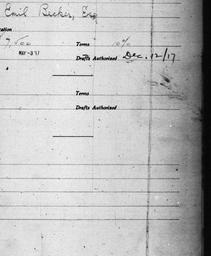 Emil Becker, Esq
ation
7,500 Terms 10%
MAY -3 17 Drafts Authorized Dec. 12/17
Terms
Drafts Authorized